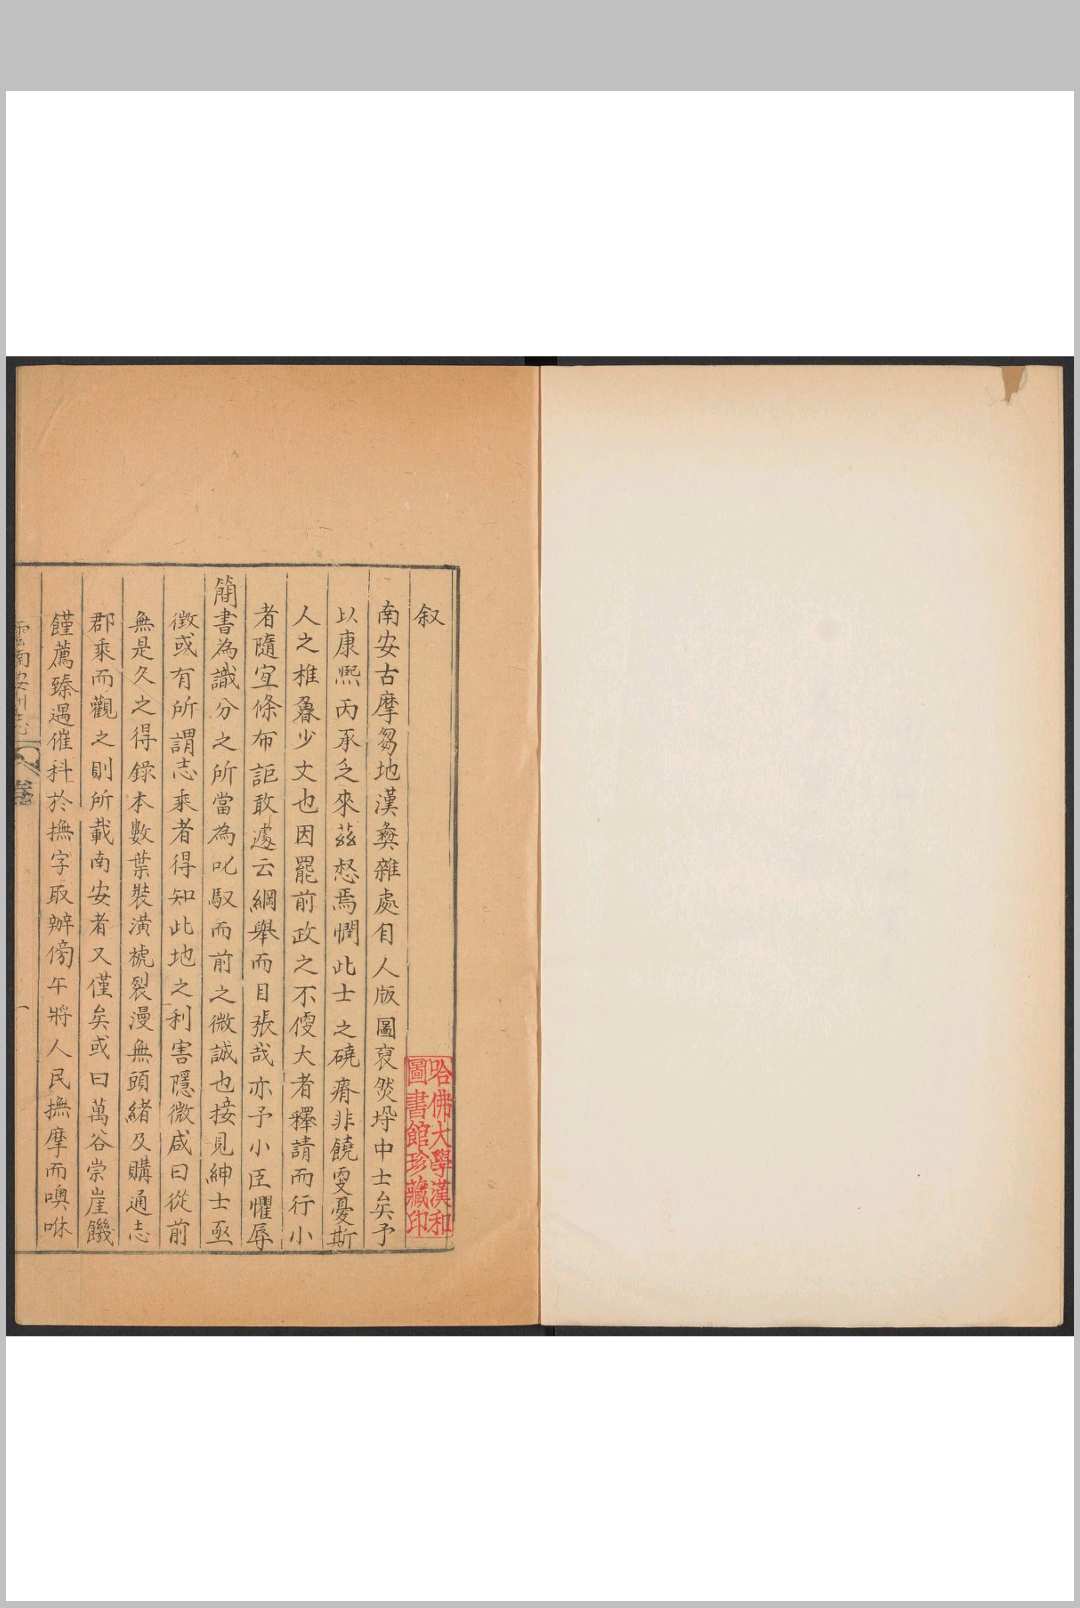 叙
南安古摩芻地漢彝雜處自入版圖裒然垛中士矣予
以康熙丙承乏來茲惄焉憫此士之磽瘠非饒雯憂斯
人之椎魯少文也因罷前政之不便大者釋請而行小
者隨宜條布詎敢遽云綱舉而目張哉亦予小臣懼辱
簡書為識分之所當為叱馭而前之微誠也接見紳士亟
徵或有所謂志乘者得知此地之利害隱微咸曰從前
無是久之得錄本數葉裝潢搋裂漫無頭緒及購通志
郡乘而觀之則所載南安者又僅矣或曰萬谷崇崖饑
饉薦臻遇催科於撫字取辦傍午將人民撫摩而噢咻
雲南安州志 卷 一
哈佛大學漢和
圖書館珍藏印